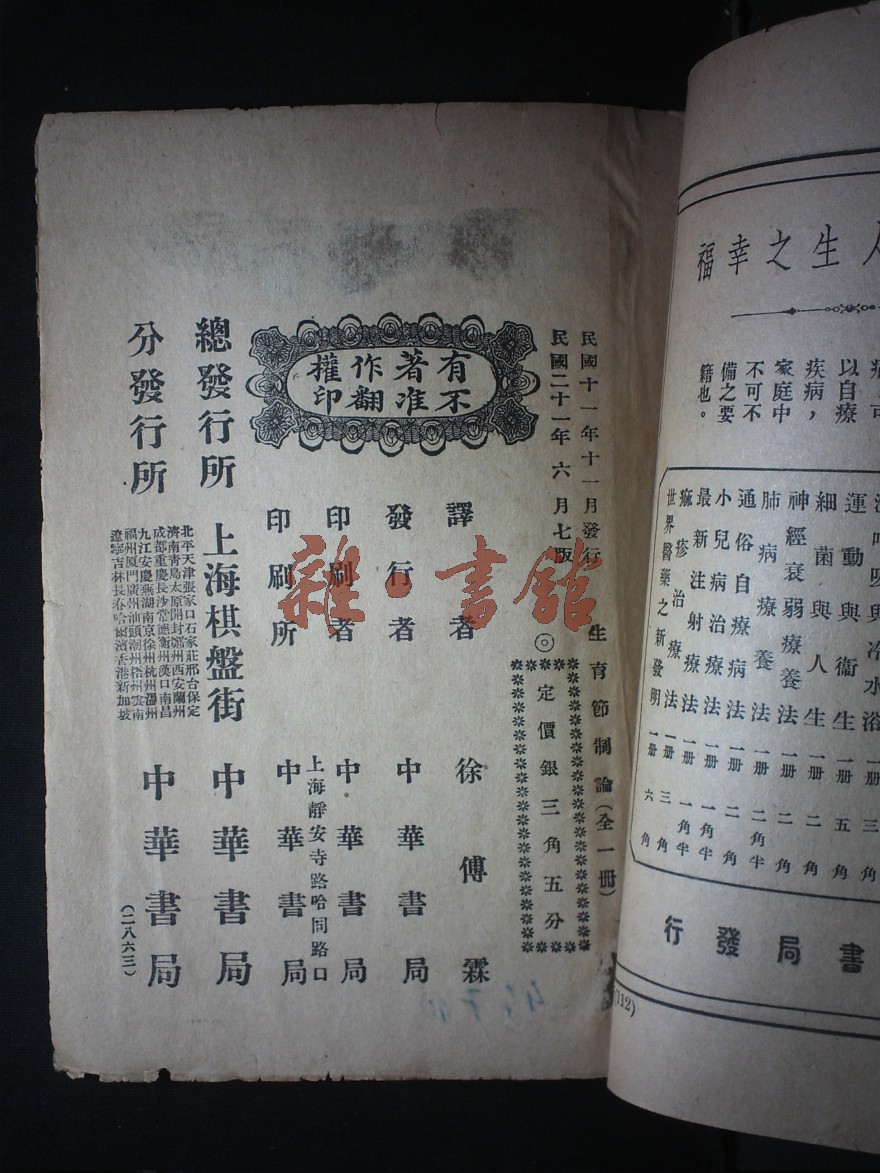 人生之幸福
以自療
疾病，
家庭中
不可不
備之要
籍也。
運動與冷水浴 一册 三角
運動與衞生 一册 五角
細菌與人生 一册 二角
神經衰弱療養法 一册 二角
肺病療養法 一册 二角半
通俗自療病法 一册 二角
小兒病治療法 一册 一角半
最新注射療法 一册 一角半
痲疹治療法 一册 三角
世界醫藥之新發明 一册 六角
書局發行
(112)
民國十一年十一月發行
民國二十一年六月七版
生育節制論（全一冊）
◎定價銀三角五分
有著作權
不准翻印
譯者 徐傅霖
發行者 中華書局
印刷者 中華書局
上海靜安寺路哈同路口
印刷所 中華書局
總發行所 上海棋盤街 中華書局
分發行所
北平天津張家口石家莊邢台保定
濟南青島太原開封鄭州西安蘭州
成都重慶長沙常德衡州漢口南昌
九江安慶蕪湖南京徐州杭州溫州
福州厦門廣州汕頭潮州梧州雲南
遼寧吉林長春哈爾濱香港新加坡
中華書局
（二八六三）
雜·書館